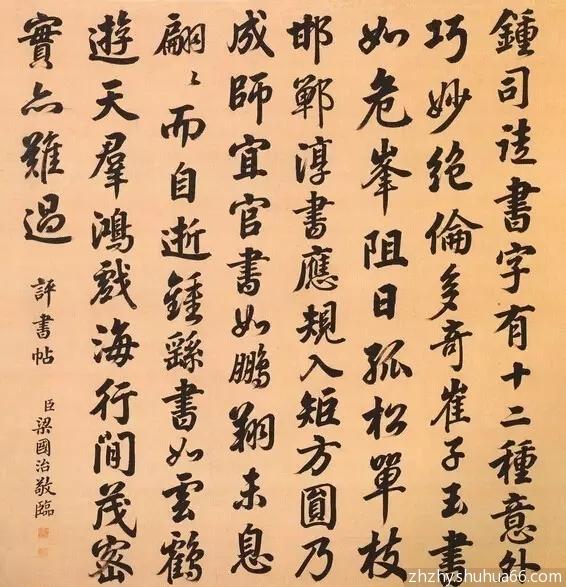 鍾司徒書字有十二種意外
巧妙絕倫多奇崔子玉書
如危峯阻日孤松單枝
邯鄲淳書應規入矩方圓乃
成師宜官書如鵬翔未息
翩〻而自逝鍾繇書如雲鶴
遊天羣鴻戲海行間茂密
實亦難過
評書帖
臣梁國治敬臨
zhzhyshuhua66.com